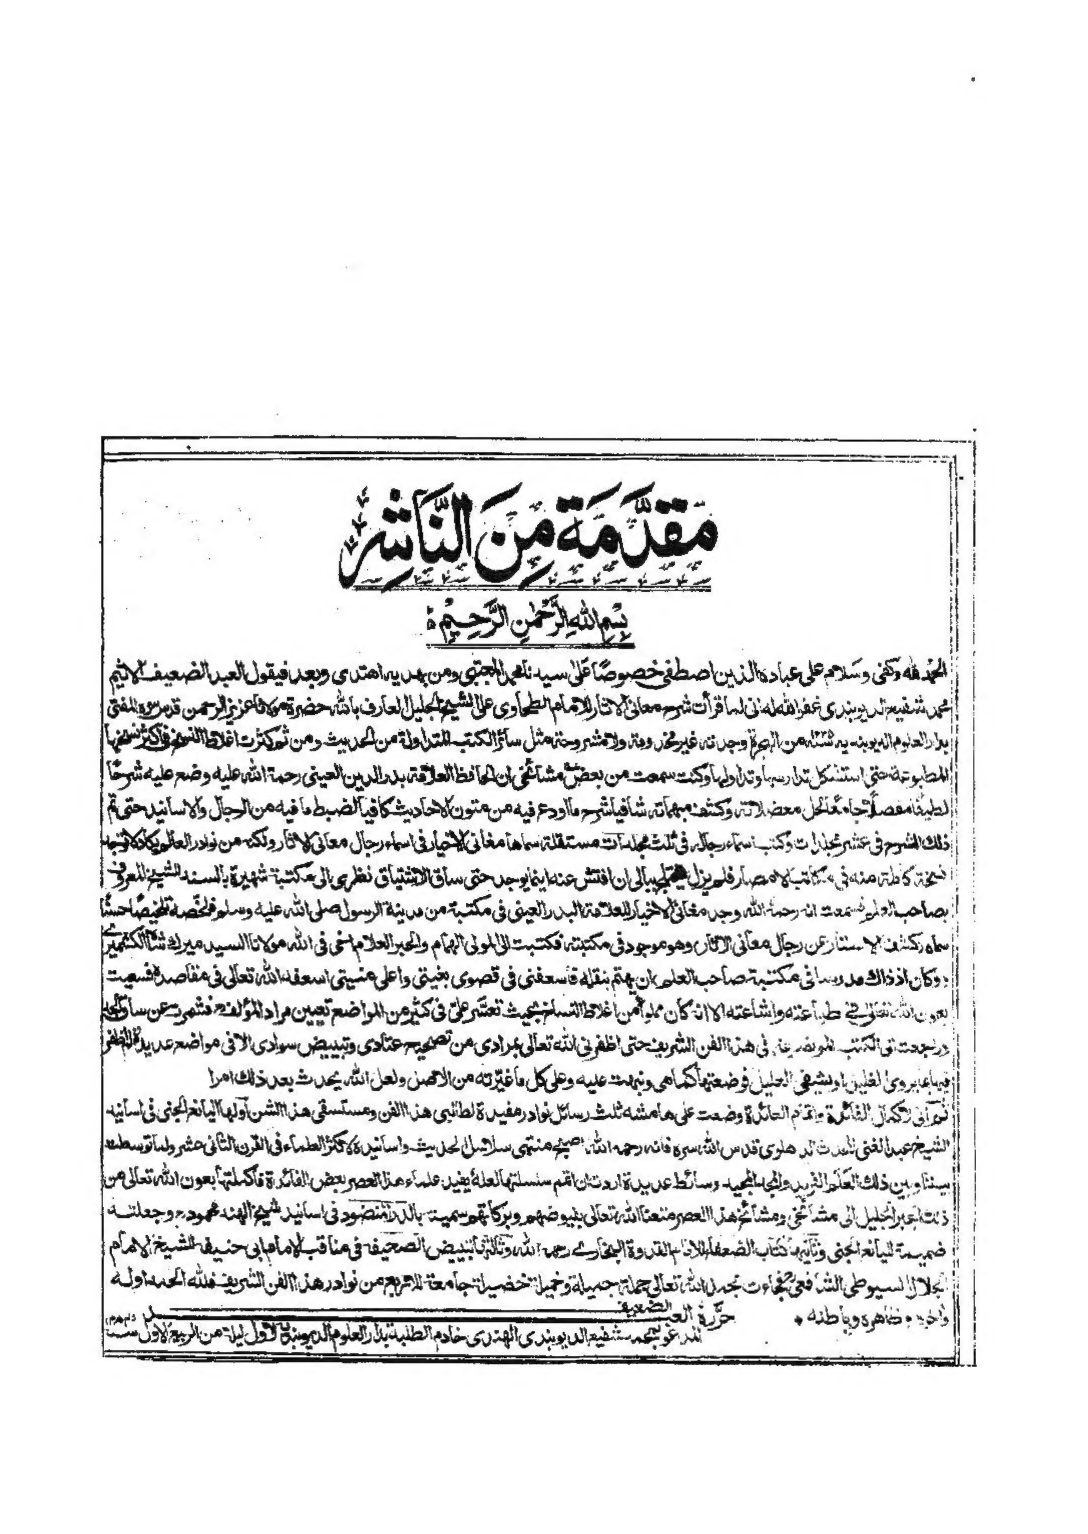 مقدمة من الناشر
بسم الله الرحمن الرحيم
الحمد لله وكفى وسلام على عباده الذين اصطفى خصوصًا على سيدنا محمد المجتبى ومن بهديه اهتدى وبعد فيقول العبد الضعيف الاثيم
محمد شفيع الديوبندى غفر الله له انى لما قرأت شرح معانى الاثار للامام الطحاوى على الشيخ الجليل العارف بالله حضرة مولانا عزيز الرحمن قدس سره المفتى
بدار العلوم الديوبندية من الهجرة وجدته غير مخدومة ولا مشروحة مثل سائر الكتب المتداولة من الحديث ومن ثم كثرت اغلاط النسخ فى اكثر نسخها
المطبوعة حتى استشكل تدارسها وتداولها وكنت سمعت من بعض مشائخى ان الحافظ العلامة بدر الدين العينى رحمة الله عليه وضع عليه شرحًا
لطيفا مفصلًا جامعًا لحل معضلاته وكشف مبهماته شافيا شرح ما اودع فيه من متون الاحاديث كافيا لضبط ما فيه من الرجال والاسانيد حتى تم
ذلك الشرح فى عشر مجلدات وكتب اسماء رجاله فى ثلث مجلدات مستقلة سماها مغانى الاخيار فى اسماء رجال معانى الاثار ولكنه من نوادر العالم يكاد لا توجد
نسخة كاملة منه فى مكاتب الامصار فلم يزل ببالى ان افتش عنه اينما يوجد حتى ساق الاشتياق نظرى الى مكتبة شهيرة بالسند للشيخ المعروف
بصاحب العلم وسمعت انه رحمه الله وجد مغانى الاخيار للعلامة البدر العينى فى مكتبة من مدينة الرسول صلى الله عليه وسلم فلخصه تلخيصًا حسنًا
سماه كشف الاستار عن رجال معانى الاثار وهو موجود فى مكتبته فكتبت الى المولى الهمام والحبر العلام اخى فى الله مولانا السيد ميرك شاه الكشميرى
وكان اذ ذاك مدرسا فى مكتبة صاحب العلم ان يهتم بنقله فاسعفنى فى قصوى بغيتى واعلى منيتى اسعفه الله تعالى فى مقاصده فسعيت
بعون الله تعالى فى طباعته واشاعته الا انه كان مملوأ من اغلاط النساخ بحيث تعسر على فى كثير من المواضع تعيين مراد المؤلف فشمرت عن ساق الجد
وراجعت الى الكتب الموضوعة فى هذا الفن الشريف حتى اظفرنى الله تعالى بمرادى من تصحيح عتادى وتبييض سوادى الا فى مواضع عديدة لم اظفر
فيها بما يروى الغليل او يشفى العليل فوضعتها كما هى ونبهت عليه وعلى كل ما غيرته من الاصل ولعل الله يحدث بعد ذلك امرا
ثم انى لاكمال الفائدة واتمام العائدة وضعت على هامشه ثلث رسائل نوادر مفيدة لطالبى هذا الفن ومستسقى هذا الشن اولها اليانع الجنى فى اسانيد
الشيخ عبد الغنى المحدث الدهلوى قدس الله سره فانه رحمه الله اصبح منتهى سلاسل الحديث واسانيده لاكثر العلماء فى القرن الثانى عشر ولما توسطت
بيننا وبين ذلك العلم الفريد والمجد المجيد وسائط عديدة اردت ان اضم سلسلتها لعله يفيد علماء هذا العصر بعض الفائدة فاكملتها بعون الله تعالى من
ذلك الحبر الجليل الى مشائخى ومشائخ هذا العصر متعنا الله تعالى بفيوضهم وبركاتهم سميته بالدر المنضود فى اسانيد شيخ الهند محمود وجعلته
ضميمة لليانع الجنى وثانيها كتاب الضعفاء للامام القدوة البخارى رحمه الله وثالثها تبييض الصحيفة فى مناقب الامام ابى حنيفة للشيخ الامام
الجلال السيوطى الشافعى فجاءت بحمد الله تعالى جملة جميلة وخميلة خضيلة جامعة للاتربع من نوادر هذا الفن الشريف فلله الحمد اوله
واخره وظاهره وباطنه حرره العبد الضعيف
محمد شفيع الديوبندى الهندى خادم الطلبة بدار العلوم الديوبندية لاول ليلة من الربيع الاول